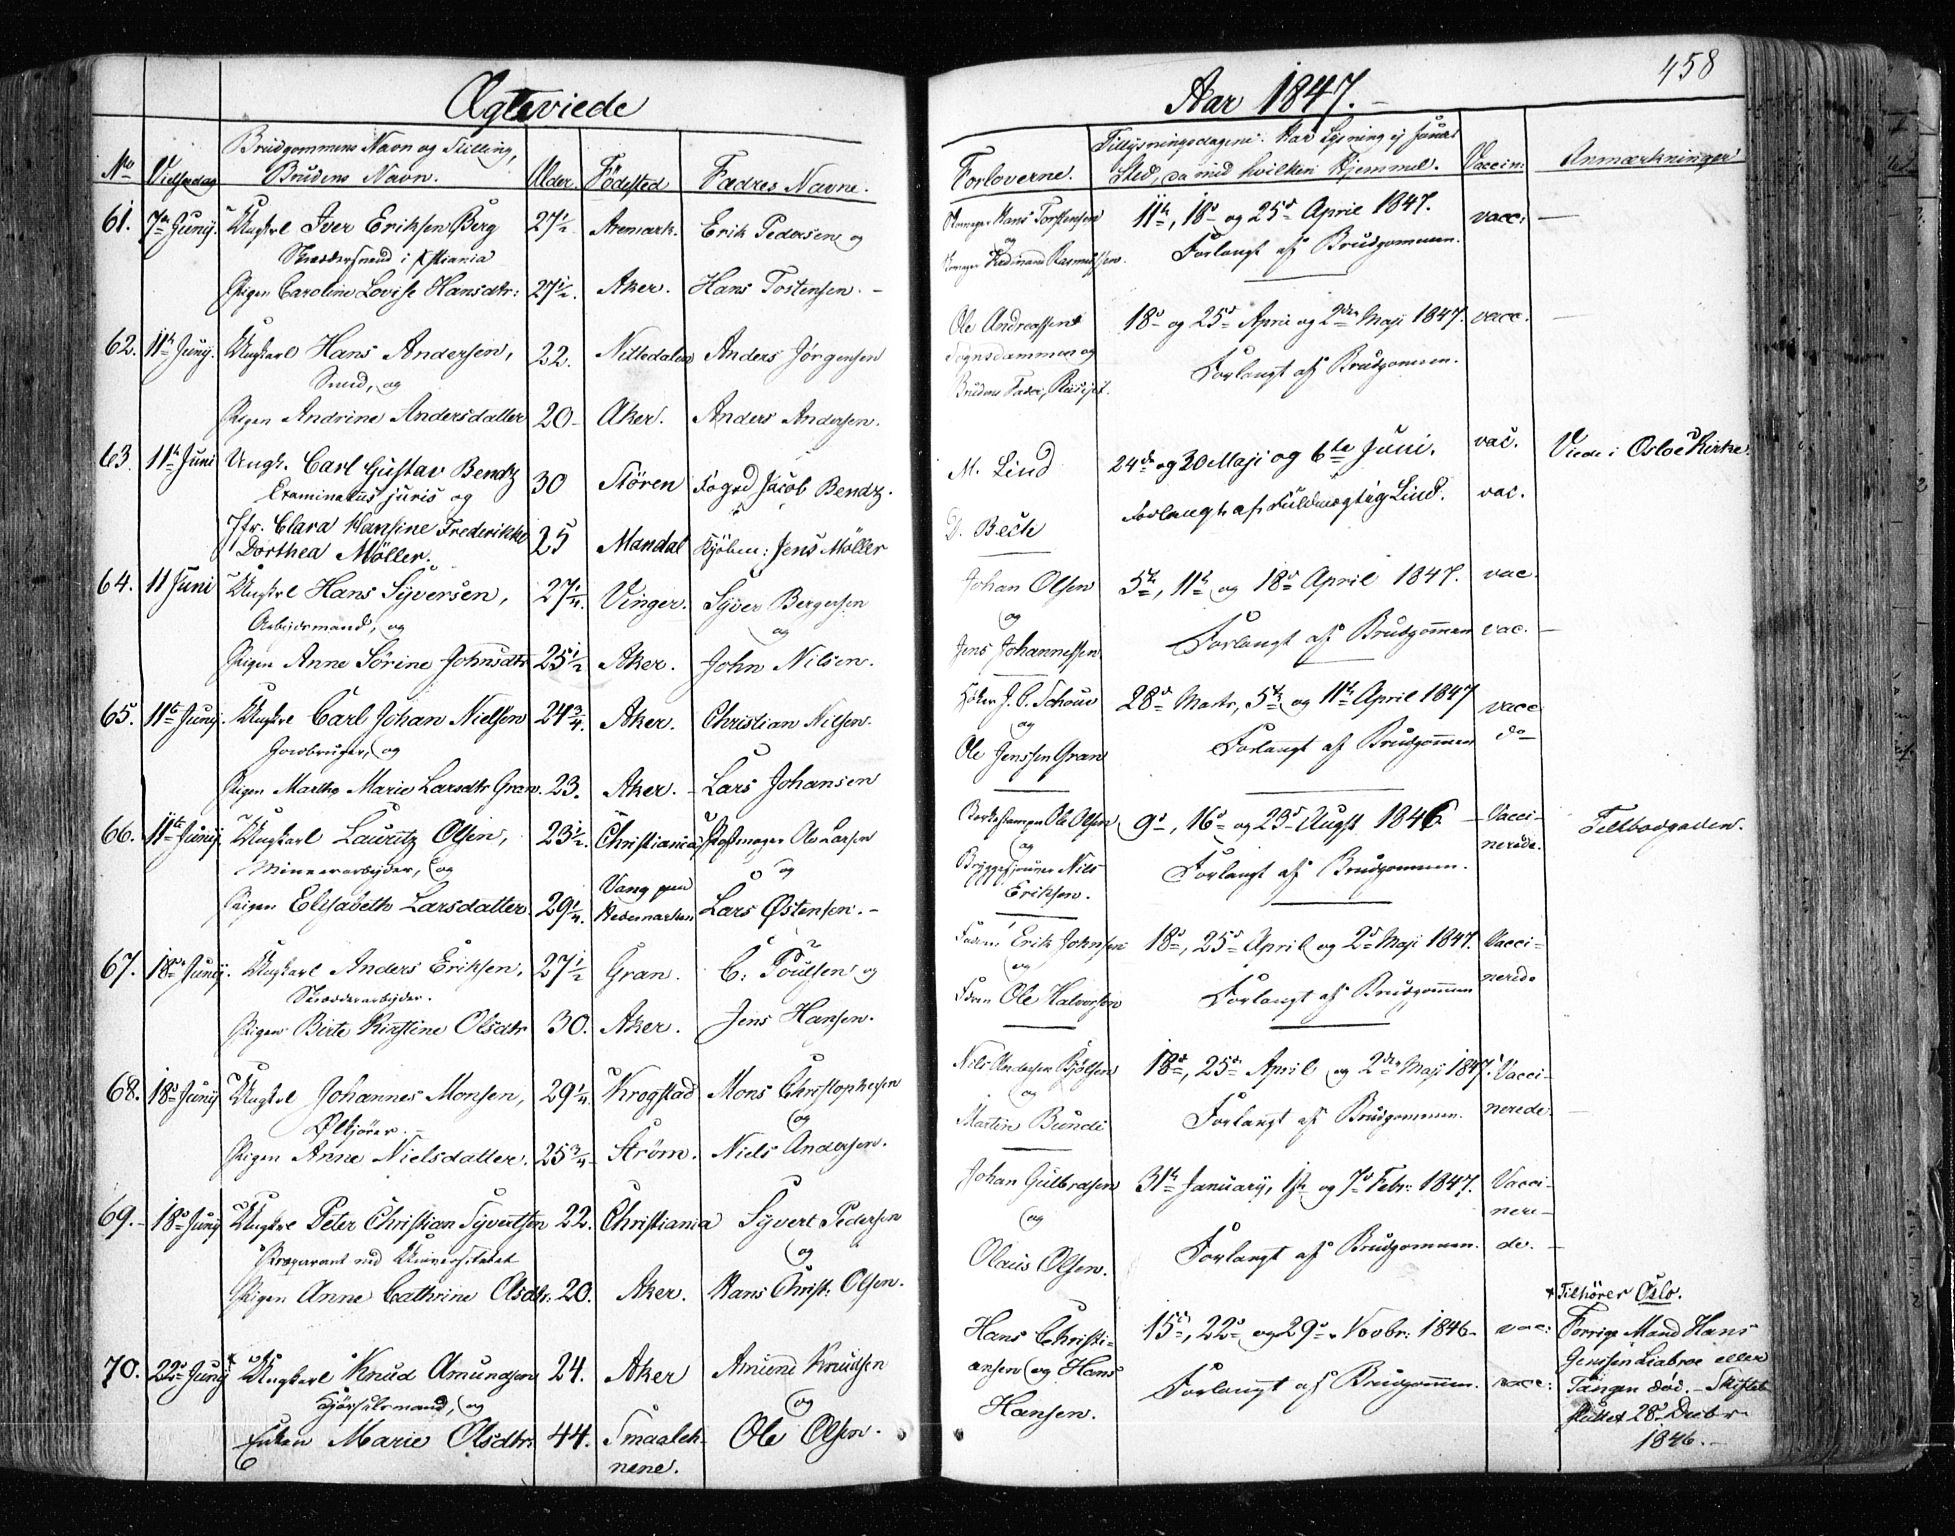 458
Ægteviede
Aar 1847.
No
Vielsesdag
Brudgommens Navn og Stilling,
Brudens Navn.
Alder.
Fødested
Fædres Navne.
Forloverne.
Tillysningsdagene. Har Lysning ej fundet
Sted, da med hvilken Hjemmel.
Vaccin:
Anmærkninger
61. 7de Junij. Ungkrl Iver Eriksen Berg 27½ Aremark. Erik Pedersen og
Skræddersvend i Xstiania
Pigen Caroline Lovise Hansdtr: 27½. Aker. Hans Tostensen.
Hans Torstensen
og
Ferdinand Rasmussen.
11te, 18de og 25de April 1847. vacc:
Forlangt af Brudgommen.
62. 11te Junij. Ungkarl Hans Andersen, 22. Nittedalen Anders Jørgensen
Smed, og
Pigen Andrine Andersdatter 20 Aker. Anders Andersen.
Ole Andreassen
Sognsdammen og
Brudens Fader,
18de og 25de April og 2den Maji 1847. vacc.
Forlangt af Brudgommen.
63. 11te Juni Ungk. Carl Gustav Bendz 30 Stören Fogd Jacob Bendz.
Examinatus juris og
Jfr. Clara Hansine Frederikke
Dorthea Møller. 25 Mandal Kjöbm: Jens Møller
M. Lind
D. Bech
24de og 30 Maji og 6te Juni. vac.
Forlangt af Fuldmægtig Lind. vac.
Viede i Osloe Kirke.
64. 11 Juni Ungkrl Hans Syversen, 27¼. Vinger. Syver Bergersen
Arbeidsmand, og
og
Pigen Anne Sörine Johnsdtr 25½ Aker. John Nilsen.
Johan Olsen
og
Jens Johannessen.
5te, 11te og 18de April 1847. vac.
Forlangt af Brudgommen vac.
65. 11te Junij. Ungkrl Carl Johan Nielsen 24¾. Aker. Christian Nilsen.
Jordbruger, og
Pigen Marthe Marie Larsdtr Gran. 23. Aker. Lars Johansen
J. C. Schou
og
Ole Jenssen Gran
28de Marts, 5te og 11te April 1847 vacc
Forlangt af Brudgommen do
66. 11te Junij. Ungkarl Lauritz Olsen, 23½. Christiania Ole Larsen
Minerarbeider, og
og
Pigen Elisabeth Larsdatter 29¼. Vang paa
Hedemarken Lars Østensen.
Ole Olsen
og
Nils
Eriksen.
9de, 16de og 23de August 1846. Vacci-
nerede.
Forlangt af Brudgommen.
Feltbodgaden.
67. 18de Junij. Ungkarl Anders Eriksen, 27½ Gran. E: Poulsen og
Skrædderarbeider.
Pigen Birte Kirstine Olsdtr 30. Aker. Jens Hansen.
Erik Johnsen
og
Ole Halvorsen
18de, 25de April og 2den Maji 1847. Vacci-
nerede
Forlangt af Brudgommen
68. 18de Junij Ungkrl Johannes Monsen, 29¼. Krogstad Mons Christophersen
Ølkjører.
og
Pigen Anne Nielsdatter. 25¾ Strøm. Niels Andersen.
Nils Andersen Kjølsen
og
Martin Bunde
18de, 25de April og 2den Maji 1847. Vacci-
nerede.
Forlangt af Brudgommen.
69. 18de Junij Ungkrl Peter Christian Syvertsen 22. Christiania Syvert Pedersen
Præparant ved Universitetet
og
Pigen Anne Cathrine Olsdtr. 20. Aker. Hans Christ: Olsen.
Johan Gulbrdsen
og
Olaus Olsen.
31te January, 1ste og 7de Febr: 1847. Vacci-
nere-
de.
Forlangt af Brudgommen.
70. 22de Junij Ungkarl Knud Amundsen 24. Aker Amund Knudsen
Kjörselsmand, og
og
Enken Marie Olsdtr. 44. Smaaleh-
nene. Ole Olsen.
Hans Christi-
ansen og Hans
Hansen.
15de, 22de og 29de Novbr: 1846. vac:
Forlangt af Brudgommen. vacc:
Tilhörer Oslo.
Forrige Mand Hans
Jenssen Liabroe eller
Tangen död. Skiftet
sluttet 28de Decbr
1846.